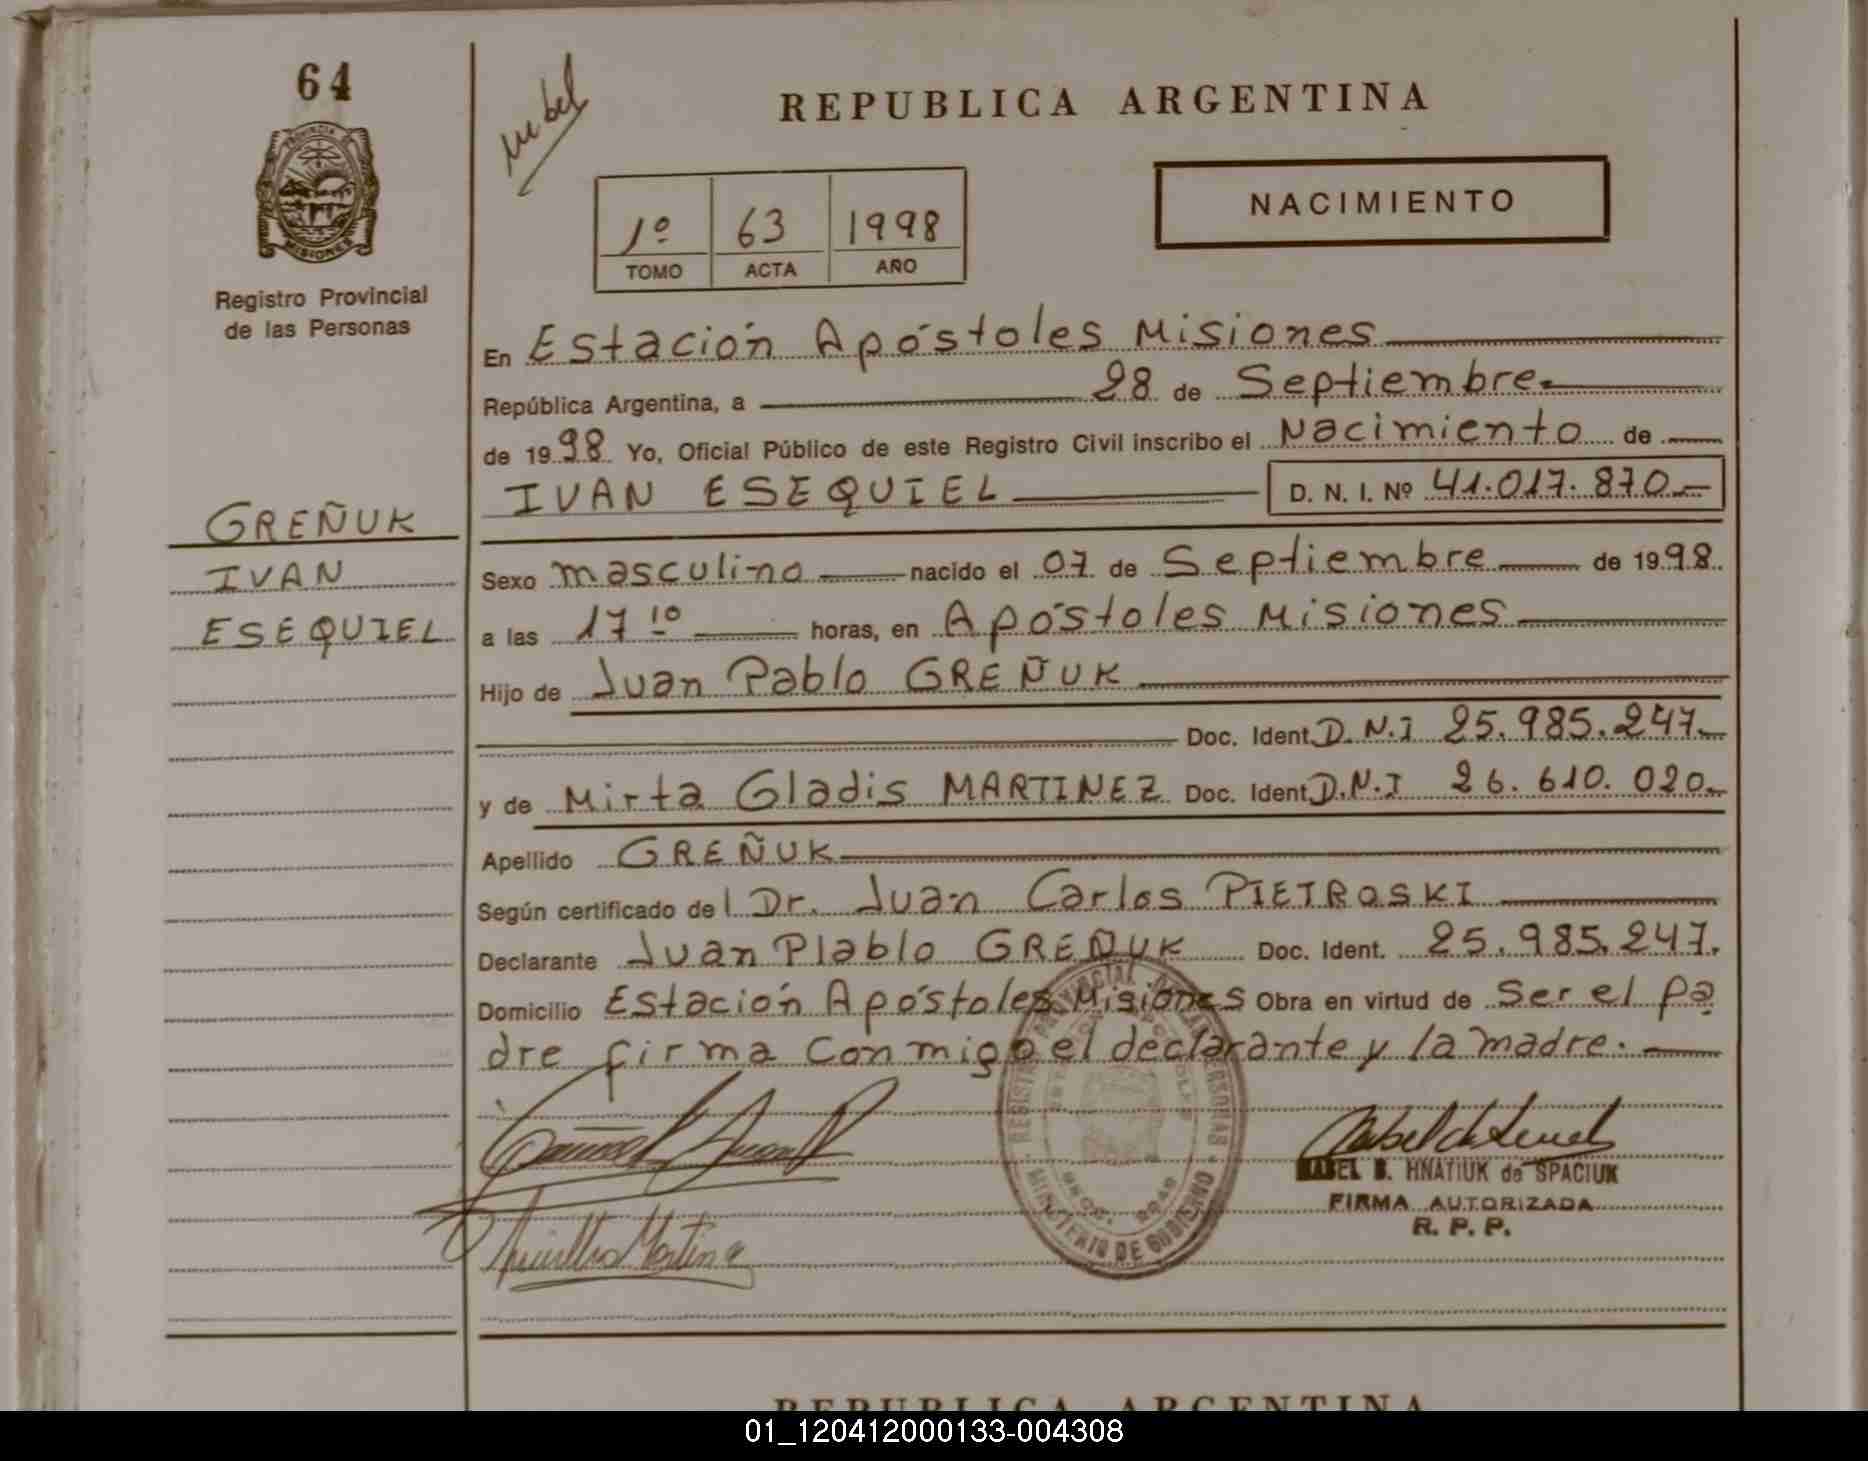 64
PROVINCIA
MISIONES
Registro Provincial
de las Personas
GREÑUK
IVAN
ESEQUIEL
REPUBLICA ARGENTINA
1º 63 1998
TOMO ACTA AÑO
NACIMIENTO
En Estación Apóstoles Misiones
República Argentina, a 28 de Septiembre
de 1998 Yo, Oficial Público de este Registro Civil inscribo el Nacimiento de
IVAN ESEQUIEL D. N. I. Nº 41.017.870
Sexo masculino nacido el 07 de Septiembre de 1998.
a las 17 10 horas, en Apóstoles Misiones
Hijo de Juan Pablo GREÑUK
Doc. Ident. D.N.I 25.985.247.
y de Mirta Gladis MARTINEZ Doc. Ident. D.N.I 26.610.020.
Apellido GREÑUK
Según certificado del Dr. Juan Carlos PIETROSKI
Declarante Juan Plablo GREÑUK Doc. Ident. 25.985.247.
Domicilio Estación Apóstoles Misiones Obra en virtud de Ser el pa
dre firma conmigo el declarante y la madre.
REGISTRO PROVINCIAL DE LAS PERSONAS
MINISTERIO DE GOBIERNO
HNATIUK de SPACIUK
FIRMA AUTORIZADA
R. P. P.
REPUBLICA ARGENTINA
01_120412000133-004308